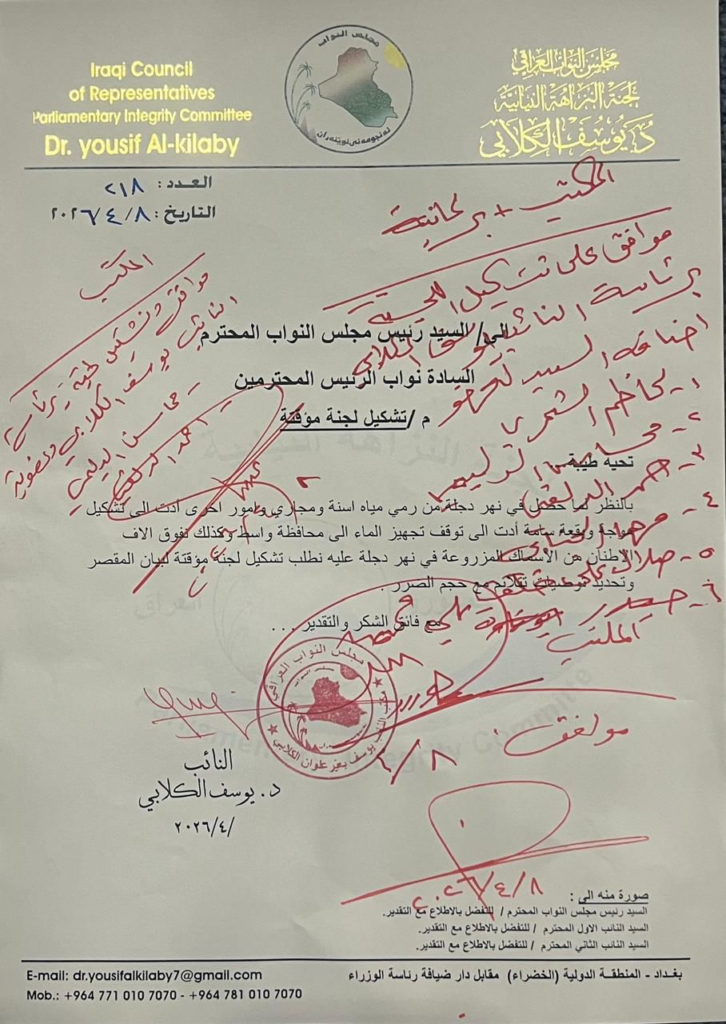 Iraqi Council
of Representatives
Parliamentary Integrity Committee
Dr. yousif Al-kilaby
مجلس النواب
ئه نجومه نی نوێنه ران
مجلس النواب العراقي
لجنة النزاهة النيابية
د. يوسف الكلابي
العدد: ٢١٨
التاريخ: ٢٠٢٦/٤/٨
المكتب + برلمانية
موافق على تشكيل اللجنة
برئاسة النائب يوسف الكلابي
اضافة السيد
١- كاظم الشمري
٢-
٣-
٤-
٥-
٦- حيدر
المكتب
المكتب
النائب يوسف الكلابي وعضوية
الى/ السيد رئيس مجلس النواب المحترم
السادة نواب الرئيس المحترمين
م / تشكيل لجنة مؤقتة
تحية طيبة
بالنظر لما حصل في نهر دجلة من رمي مياه اسنة ومجاري وامور اخرى ادت الى تشكيل
موجة وبقعة سامة أدت الى توقف تجهيز الماء الى محافظة واسط وكذلك نفوق الاف
الاطنان من الأسماك المزروعة في نهر دجلة عليه نطلب تشكيل لجنة مؤقتة لبيان المقصر
وتحديد توصيات تتلائم مع حجم الضرر .
مع فائق الشكر والتقدير . . .
مجلس النواب العراقي
النائب يوسف بعير علوان الكلابي
موافق
٤/٨
النائب
د. يوسف الكلابي
٢٠٢٦/٤/
٢٠٢٦/٤/٨
صورة منه الى :
السيد رئيس مجلس النواب المحترم / للتفضل بالاطلاع مع التقدير.
السيد النائب الاول المحترم / للتفضل بالاطلاع مع التقدير.
السيد النائب الثاني المحترم / للتفضل بالاطلاع مع التقدير.
E-mail: dr.yousifalkilaby7@gmail.com
Mob.: +964 771 010 7070 - +964 781 010 7070
بغداد - المنطقة الدولية (الخضراء) مقابل دار ضيافة رئاسة الوزراء